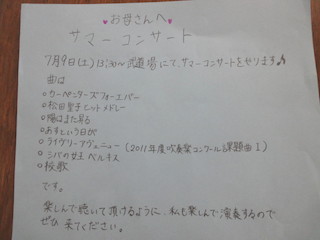 ♥お母さんへ♥
サマーコンサート
7月9日(土)13:30〜武道場にて、サマーコンサートをせります♪
曲は
○カーペンターズフォーエバー
○松田聖子ヒットメドレー
○陽はまた昇る
○あすという日が
○ライヴリーアヴェニュー(2011年度吹奏楽コンクール課題曲Ⅰ)
○シバの女王ベルキス
○校歌
です。
楽しんで聴いて頂けるように、私も楽しんで演奏するので
ぜひ来てください。